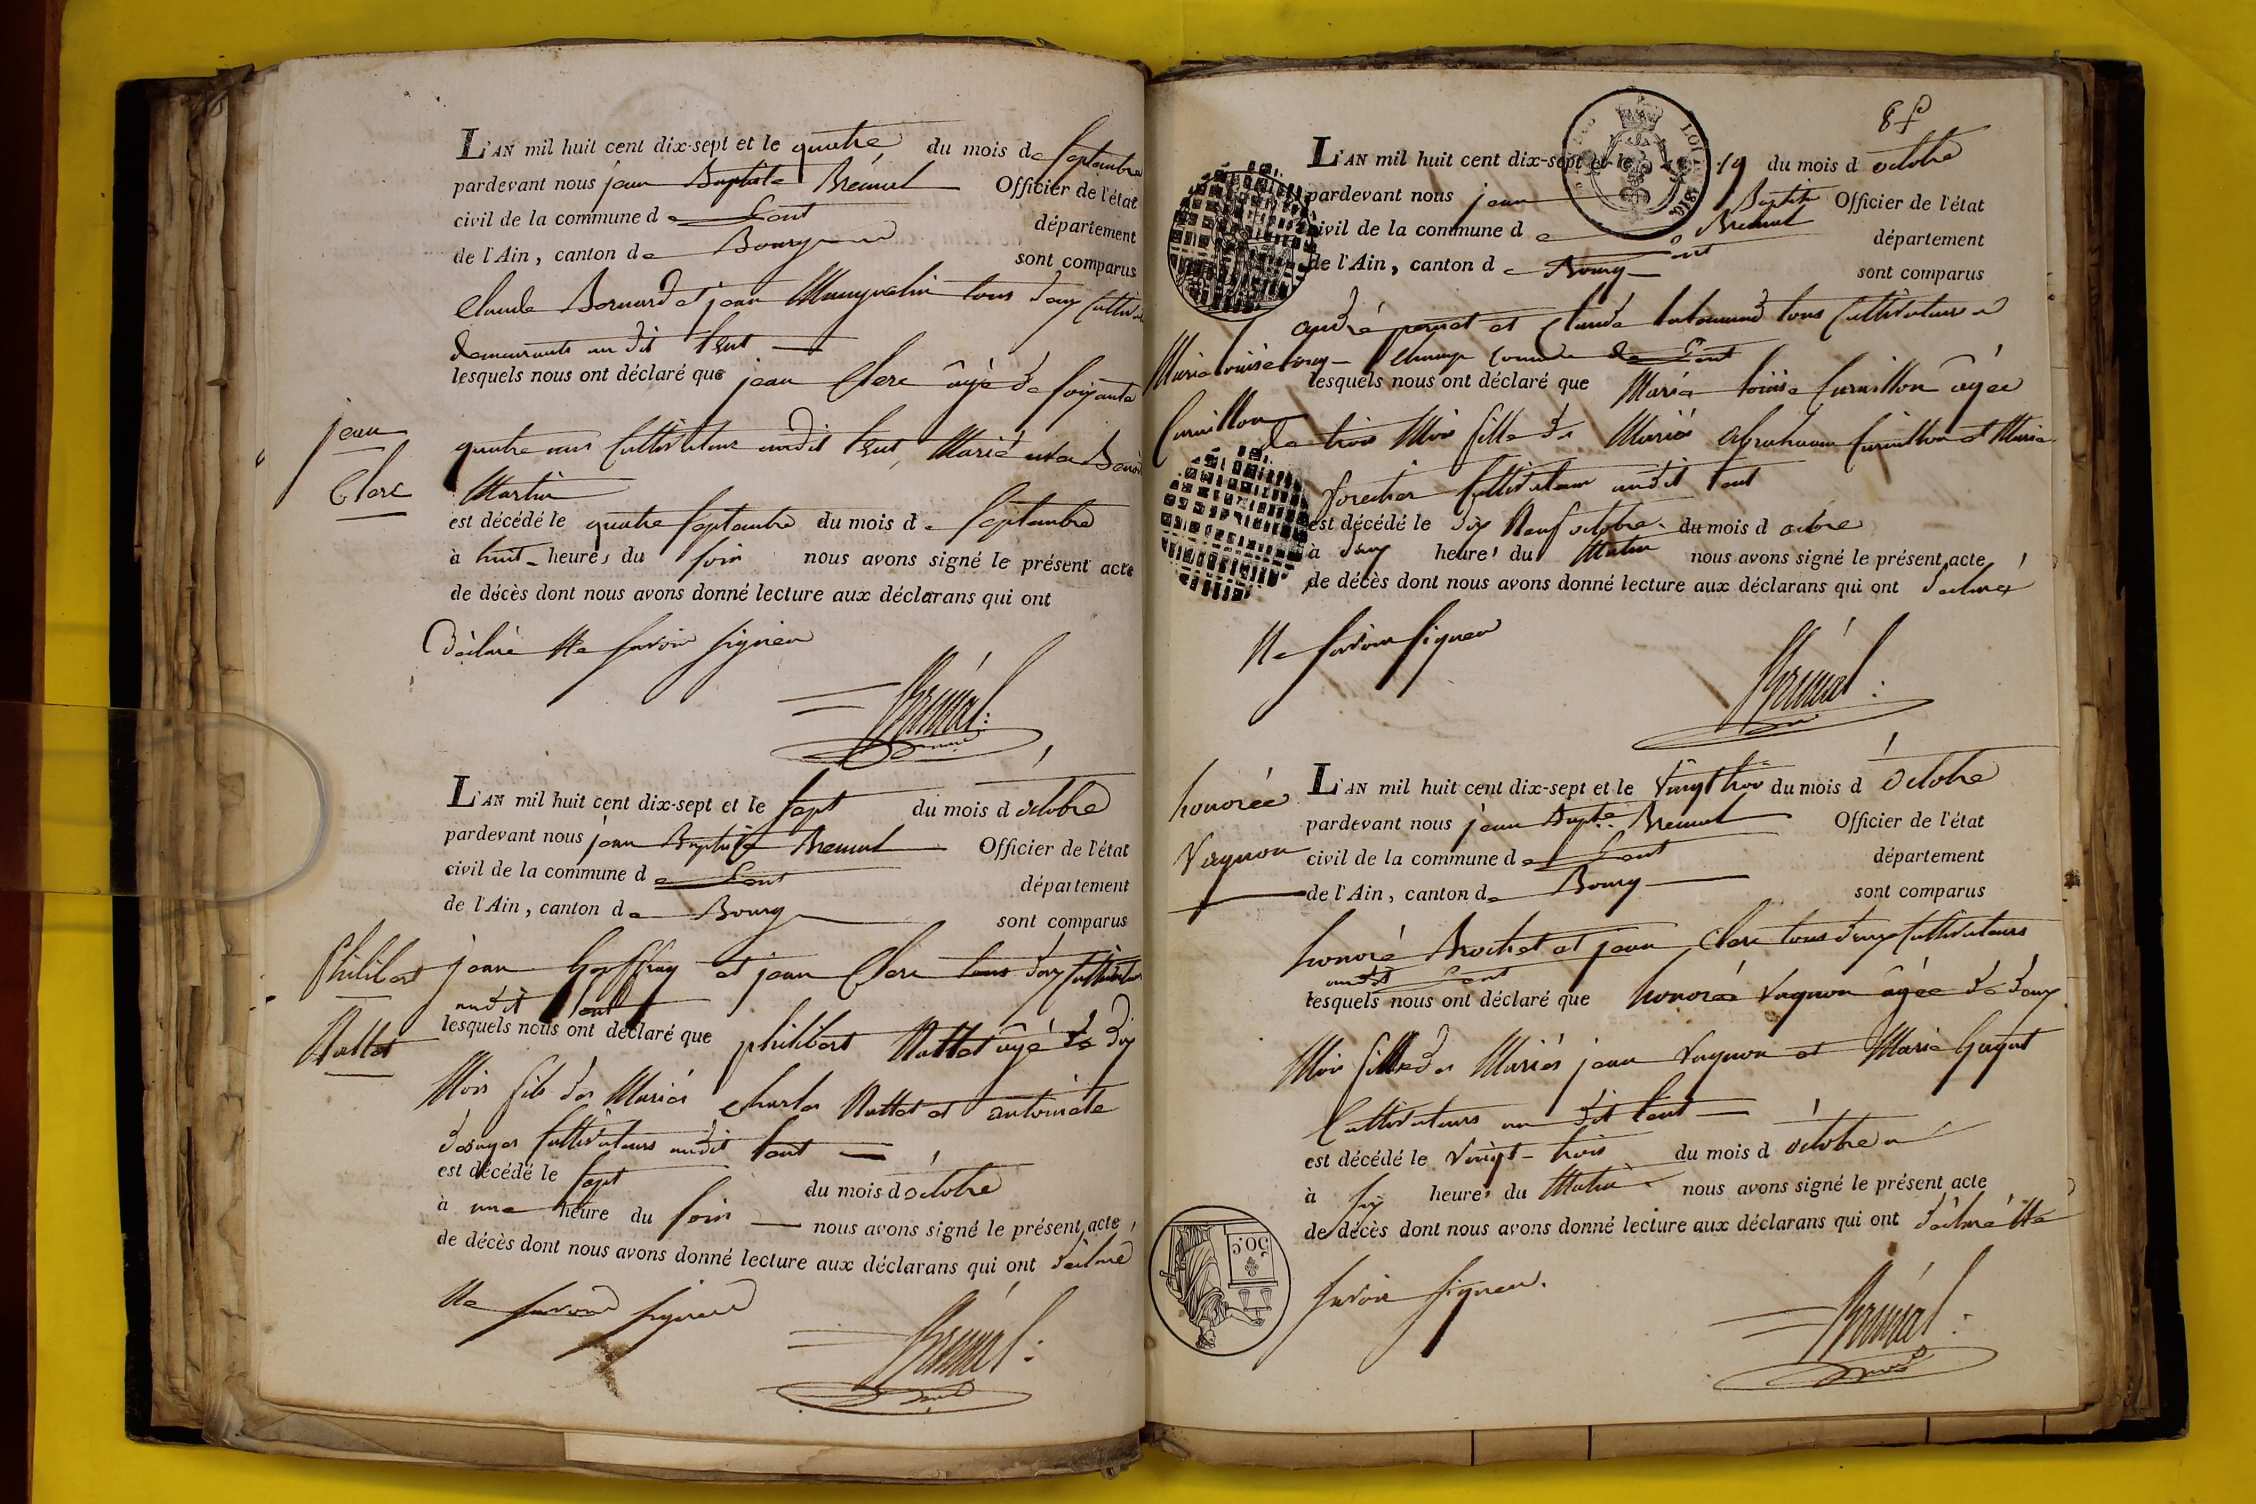 L'AN mil huit cent dix-sept et le quatre du mois de septembre
pardevant nous jean Baptiste Brémal Officier de l'état
civil de la commune de Lent
département
de l'Ain, canton de Bourg
sont comparus
Claude Bernard et jean tous deux
demeurants au dit Lent
lesquels nous ont déclaré que jean Clerc âgé de soixante
jean
Clerc
quatre ans Cultivateur audit Lent, Marié
Martin
est décédé le quatre septembre du mois de septembre
à huit heures du soir nous avons signé le présent acte
de décès dont nous avons donné lecture aux déclarans qui ont
déclaré Ne savoir signer
Brémal
L'AN mil huit cent dix-sept et le sept du mois d octobre
pardevant nous jean Baptiste Bremal Officier de l'état
civil de la commune de Lent
département
de l'Ain, canton de Bourg
sont comparus
Philibert
Nallet
jean Geoffray et jean Clerc tous deux Cultivateurs
audit Lent
lesquels nous ont déclaré que philibert Nallet âgé de dix
Mois fils des Mariés Charles Nallet et antoinete
Cultivateurs audit Lent
est décédé le sept du mois d octobre
à une heure du soir nous avons signé le présent acte
de décès dont nous avons donné lecture aux déclarans qui ont déclaré
Ne savoir signer
Brémal
8
L'AN mil huit cent dix-sept et le 19 du mois d octobre
pardevant nous jean Baptiste Officier de l'état
Bremal
civil de la commune de Lent
département
de l'Ain, canton de Bourg
sont comparus
andré pernet et Claude tous Cultivateurs a
commune de Lent
Marie Louise
Curnillon
lesquels nous ont déclaré que Marie Louise Curnillon âgée
de trois Mois fille des Mariés abraham Curnillon et Marie
Cultivateurs audit Lent
est décédé le dix Neuf octobre du mois d octobre
à deux heures du Matin nous avons signé le présent acte
de décès dont nous avons donné lecture aux déclarans qui ont déclaré
Ne savoir signer
Brémal
honorée
Vagnon
L'AN mil huit cent dix-sept et le vingt trois du mois d octobre
pardevant nous jean Bapte Bremal Officier de l'état
civil de la commune de Lent
département
de l'Ain, canton de Bourg
sont comparus
honoré Brochet et jean Clerc tous deux Cultivateurs
audit Lent
lesquels nous ont déclaré que honorée Vagnon âgée de deux
Mois fille des Mariés jean Vagnon et Marie Guyat
Cultivateurs au dit Lent
est décédé le vingt-trois du mois d octobre
à six heures du Matin nous avons signé le présent acte
de décès dont nous avons donné lecture aux déclarans qui ont déclaré Ne
savoir signer.
50 c
Brémal